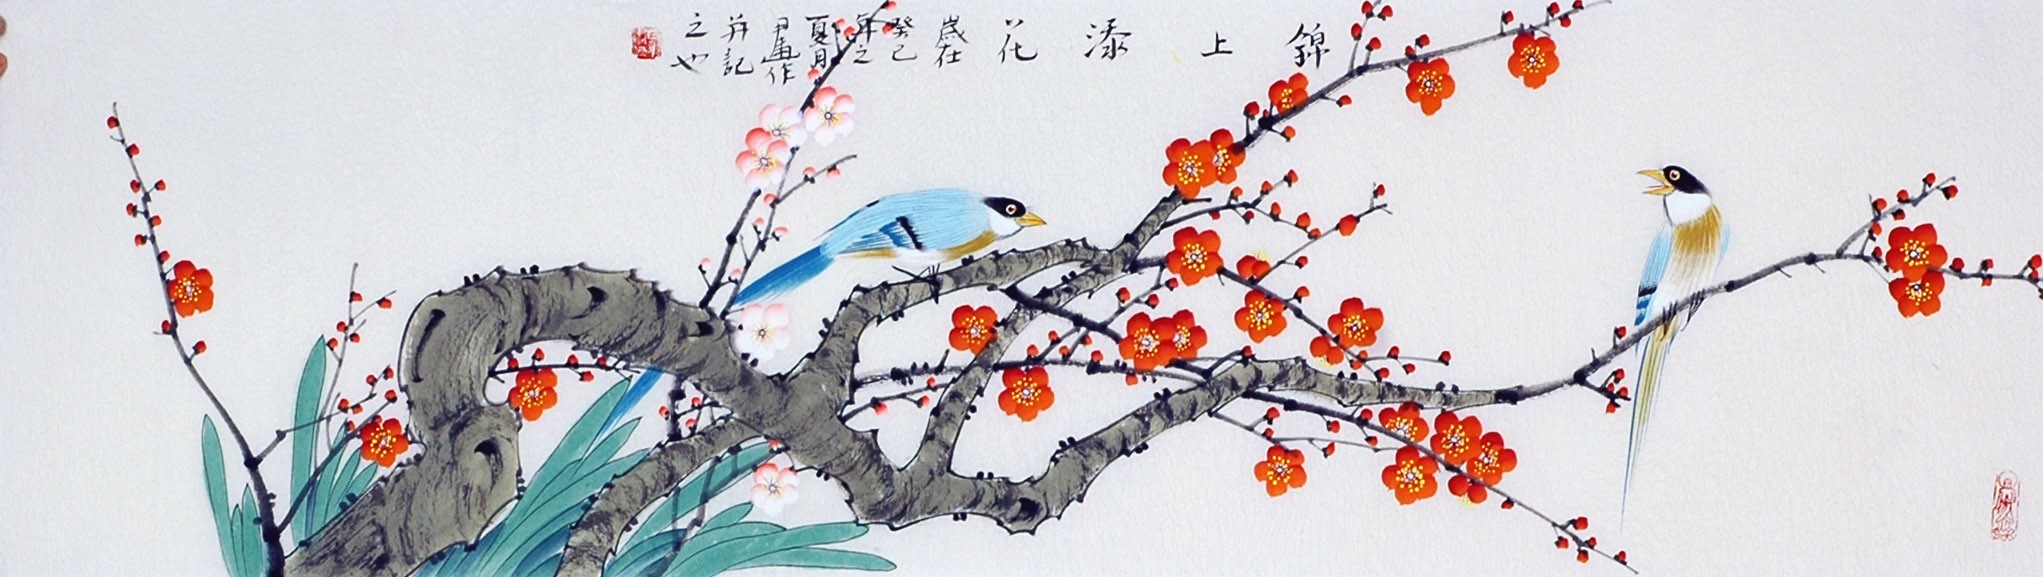 錦上添花
歲在
癸巳
年之
夏月
尹作
并記
之也